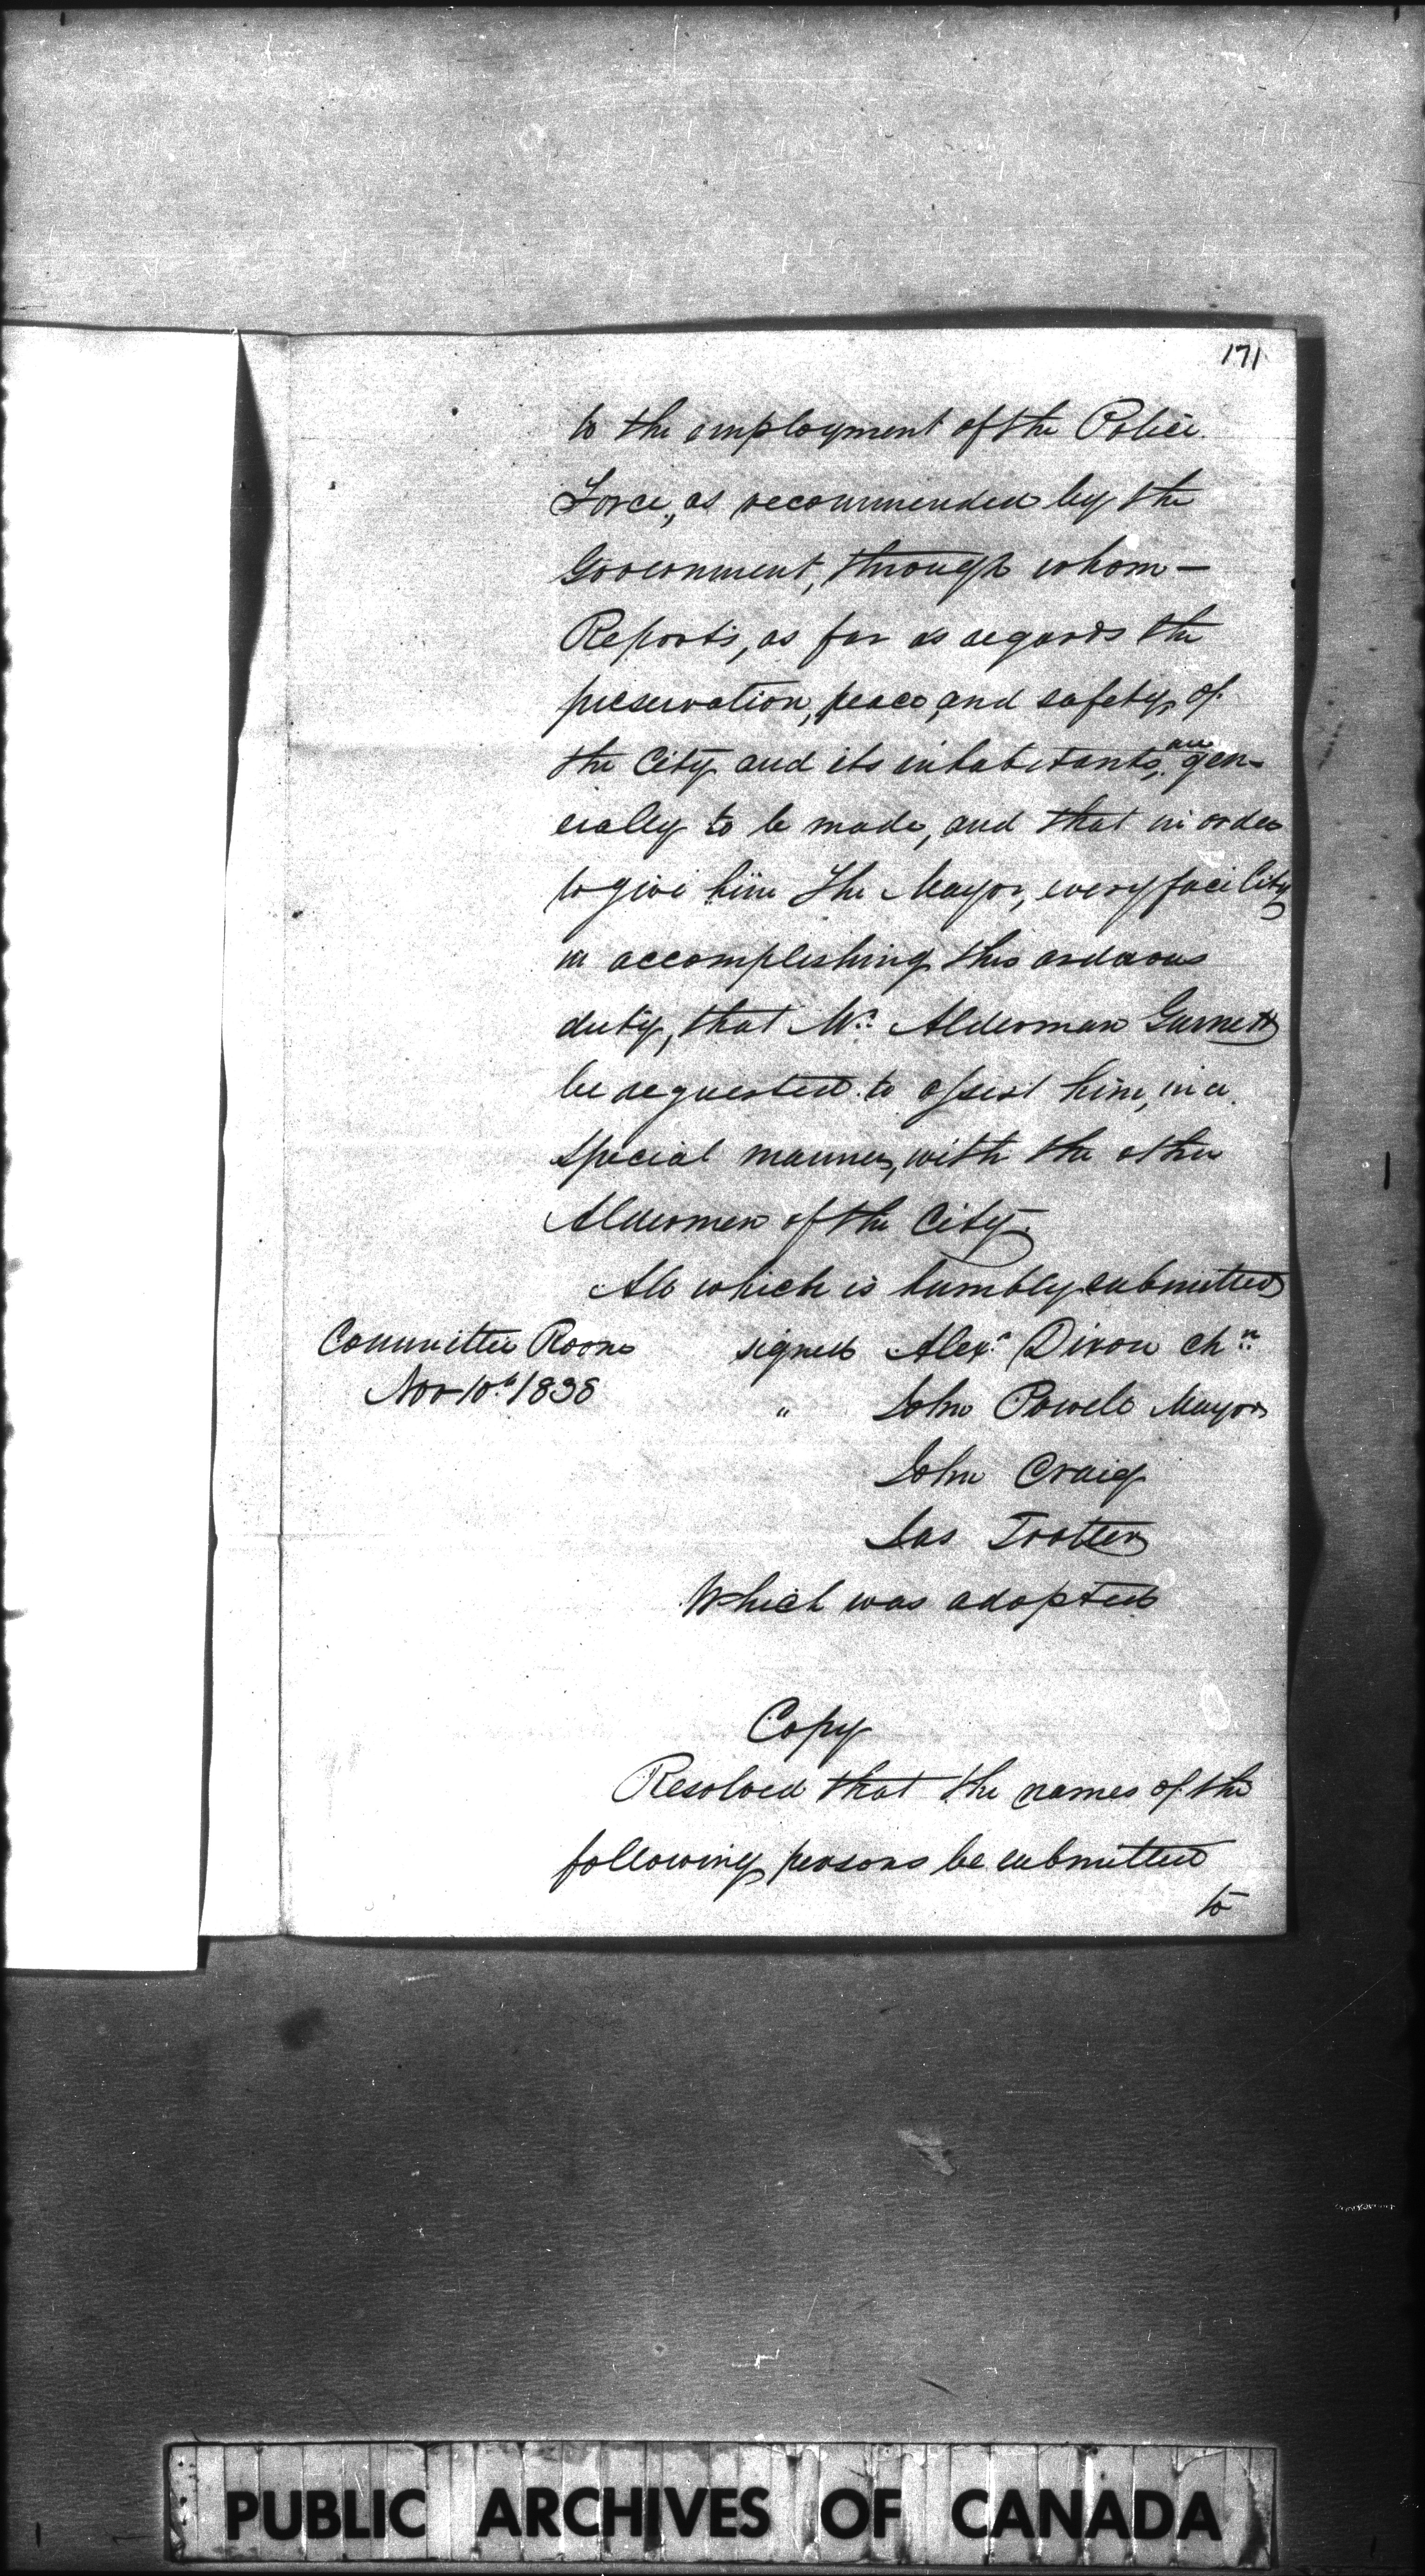 171
to the employment of the Police
Force, as recommended by the
Government, through whom —
Reports, as far as regards the
preservation, peace, and safety, of
the City and its inhabitants, are gen-
erally to be made, and that in order
to give him the Mayor, every facility
in accomplishing this arduous
duty, that Mr. Alderman Gurnett
be requested to assist him, in a
special manner, with the other
Aldermen of the City.
All which is humbly submitted
Committee Room signed Alexr Dixon Chn
Nov 10th 1838 " John Powell Mayor
John Craig
Jas Trotter
Which was adopted
Copy
Resolved that the names of the
following persons be submitted
to
PUBLIC ARCHIVES OF CANADA